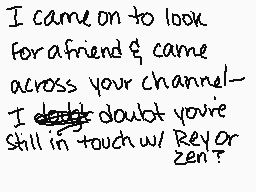 I came on to look
for a friend & came
across your channel—
I doubt you're
still in touch w/ Rey or
zen?